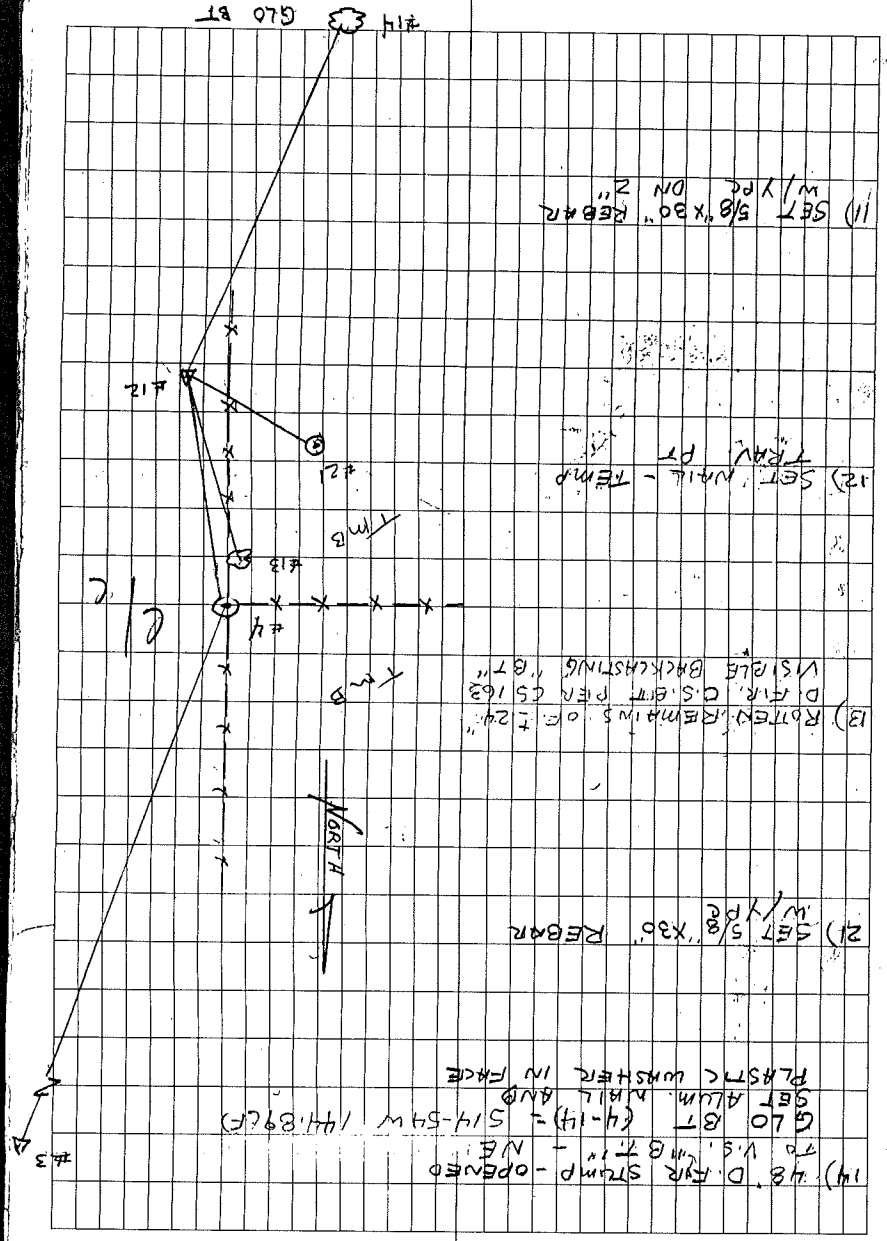 #3
14) 48" D. FIR STUMP - OPENED
TO V.S. "B.T." - NE
GLO BT (4-14) = S14-54W 144.89(F)
SET ALUM. NAIL AND
PLASTIC WASHER IN FACE
21) SET 5/8"X30" REBAR
W/YPC
NORTH
13) ROTTEN REMAINS OF ±24"
D. FIR. C.S. BT PER CS 163
VISIBLE BACKCASTING "BT"
TMB
#4
#13
TMB
#21
12) SET NAIL - TEMP
TRAV PT
#12
11) SET 5/8"X30" REBAR
W/YPC DN 2"
#14
GLO BT